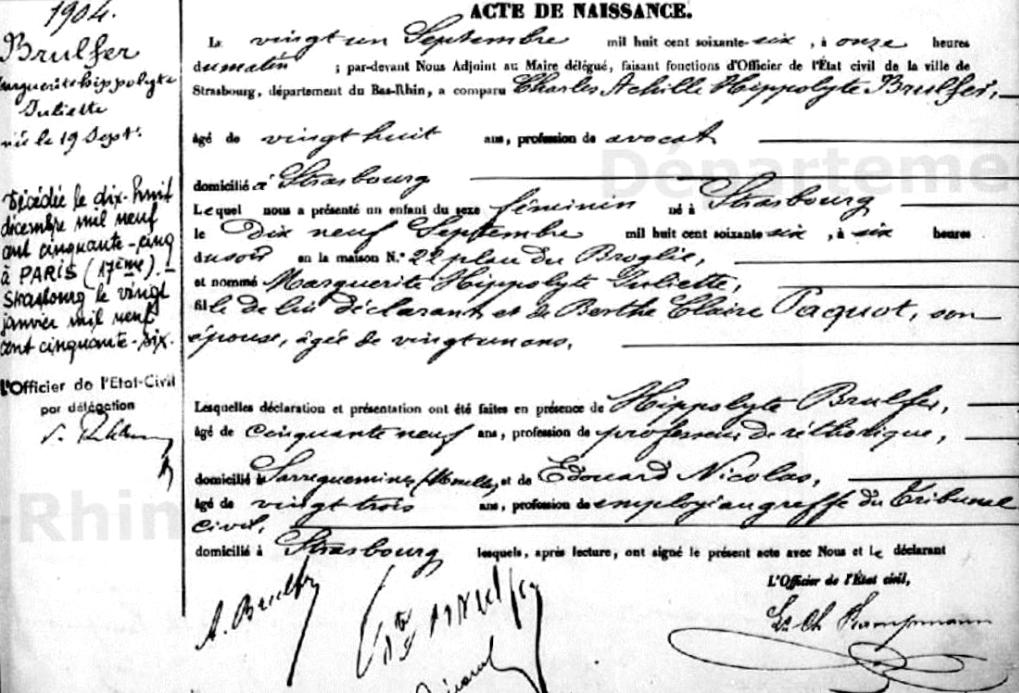 1904.
Brulfer
Marguerite hippolyte
Juliette
née le 19 Sept.
Décédée le dix-huit
décembre mil neuf
cent cinquante-cinq
à PARIS (17ème). -
Strasbourg le vingt
janvier mil neuf
cent cinquante-six.
L'Officier de l'Etat-Civil
par délégation
ACTE DE NAISSANCE.
Le vingt un Septembre mil huit cent soixante-six, à onze heures
du matin ; par-devant Nous Adjoint au Maire délégué, faisant fonctions d'Officier de l'État civil de la ville de
Strasbourg, département du Bas-Rhin, a comparu Charles Achille Hippolyte Brulfer,
âgé de vingt huit ans, profession de avocat
domicilié à Strasbourg
Lequel nous a présenté un enfant du sexe féminin né à Strasbourg
le Dix neuf Septembre mil huit cent soixante-six, à six heures
du soir en la maison N.° 22 place du Broglie,
et nommé Marguerite Hippolyte Juliette,
fille de lui déclarant et de Berthe Claire Paquot, son
épouse, âgée de vingt un ans,
Lesquelles déclaration et présentation ont été faites en présence de Hippolyte Brulfer,
âgé de cinquante neuf ans, profession de professeur de réthorique,
domicilié à Sarreguemines (Moselle) et de Edouard Nicolas,
âgé de vingt trois ans, profession de employé au greffe du Tribunal
civil,
domicilié à Strasbourg lesquels, après lecture, ont signé le présent acte avec Nous et le déclarant
L'Officier de l'État civil,
A. Brulfer
Hte Brulfer
Départeme
-Rhin